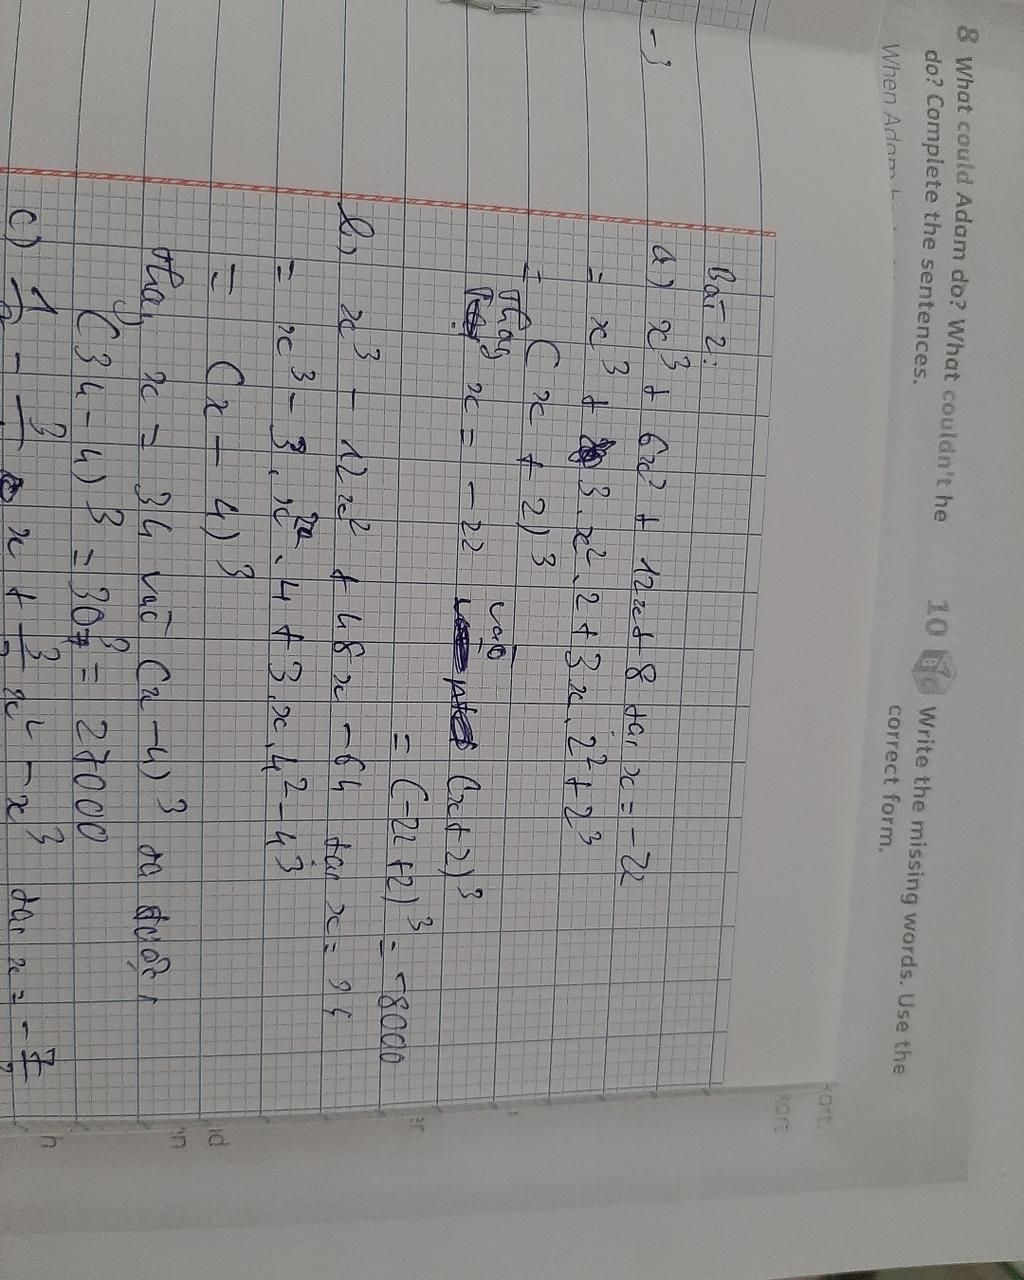 8 What could Adam do? What couldn't he
do? Complete the sentences.
When Adam
10 Write the missing words. Use the
correct form.
-3
Bài 2:
a) x³ + 6x² + 12x + 8 tại x = -22
= x³ + 3.x².2 + 3x.2² + 2³
= (x + 2)³
Thay x = -22 vào (x+2)³
= (-22+2)³ = -8000
b) x³ - 12x² + 48x - 64 tại x = 34
= x³ - 3.x².4 + 3.x.4² - 4³
= (x - 4)³
Thay x = 34 vào (x-4)³ ta được
(34 - 4)³ = 30³ = 27000
c) x + x² - x³ tại x = -